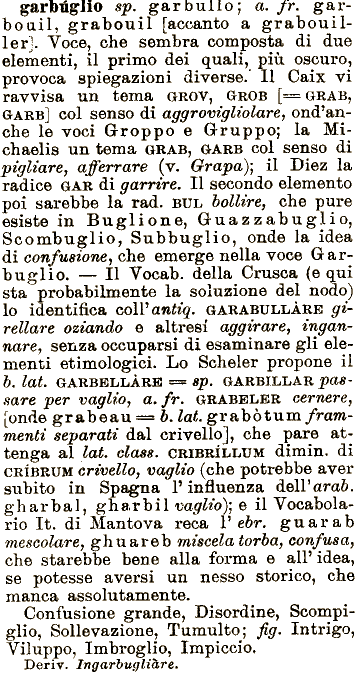 garbúglio sp. garbullo; a. fr. gar-
bouil, grabouil [accanto a grabouil-
ler]. Voce, che sembra composta di due
elementi, il primo dei quali, più oscuro,
provoca spiegazioni diverse. Il Caix vi
ravvisa un tema GROV, GROB [= GRAB,
GARB] col senso di aggrovigliolare, ond'an-
che le voci Groppo e Gruppo; la Mi-
chaelis un tema GRAB, GARB col senso di
pigliare, afferrare (v. Grapa); il Diez la
radice GAR di garrire. Il secondo elemento
poi sarebbe la rad. BUL bollire, che pure
esiste in Buglione, Guazzabuglio,
Scombuglio, Subbuglio, onde la idea
di confusione, che emerge nella voce Gar-
buglio. — Il Vocab. della Crusca (e qui
sta probabilmente la soluzione del nodo)
lo identifica coll'antiq. GARABULLÀRE gi-
rellare oziando e altresì aggirare, ingan-
nare, senza occuparsi di esaminare gli ele-
menti etimologici. Lo Scheler propone il
b. lat. GARBELLÀRE = sp. GARBILLAR pas-
sare per vaglio, a. fr. GRABELER cernere,
[onde grabeau = b. lat. grabòtum fram-
menti separati dal crivello], che pare at-
tenga al lat. class. CRIBRÍLLUM dimin. di
CRÍBRUM crivello, vaglio (che potrebbe aver
subito in Spagna l'influenza dell'arab.
gharbal, gharbil vaglio); e il Vocabola-
rio It. di Mantova reca l'ebr. guarab
mescolare, ghuareb miscela torba, confusa,
che starebbe bene alla forma e all'idea,
se potesse aversi un nesso storico, che
manca assolutamente.
Confusione grande, Disordine, Scompi-
glio, Sollevazione, Tumulto; fig. Intrigo,
Viluppo, Imbroglio, Impiccio.
Deriv. Ingarbugliàre.